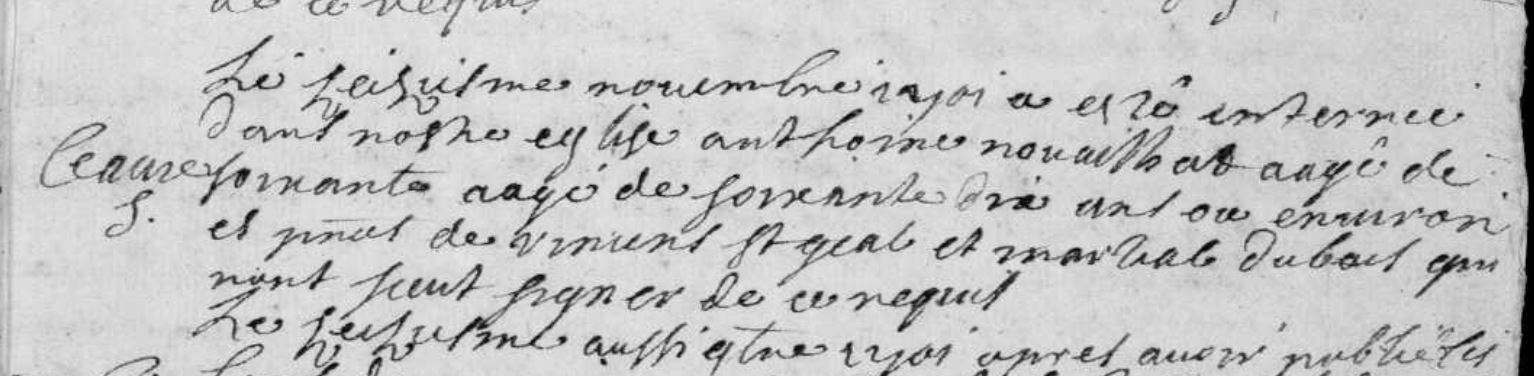 de ce requis
Le seiziesme novembre 1701 a esté enterreé
dans nostre eglise anthoine nouailhat aagé de
soixante aagé de soixante dix ans ou environ
S.
et pnts de vincens St geal et martial dubois qui
nont sceut signer de ce requis
Le seiziesme aussi 1701 apres avoir publié les